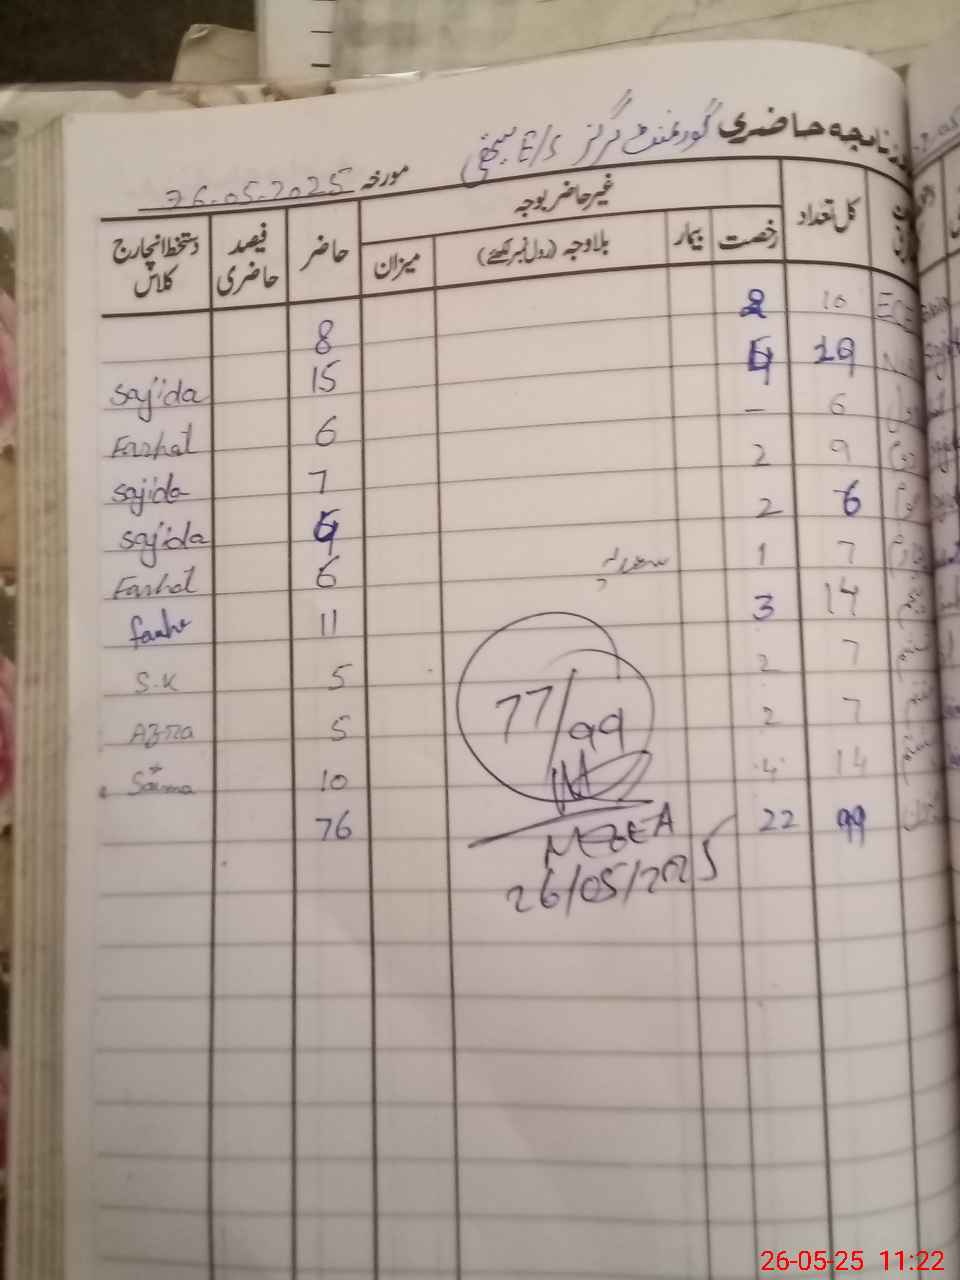 روزنامچہ حاضری گورنمنٹ گرلز E/S
مورخہ 26.05.2025
کل تعداد غیر حاضر بوجہ حاضر فیصد حاضری دستخط انچارج کلاس
رخصت بیمار بلاوجہ (رول نمبر لکھئے) میزان
ECE 10 2 8
19 4 15 Sajida
اول 6 – 6 Farhat
دوم 9 2 7 Sajida
سوم 6 2 4 Sajida
7 1 6 Farhat
14 3 11
7 2 5 S.K
7 2 5 Azra
14 4 10 Saima
99 22 76
77/99
26/05/2025
26-05-25 11:22